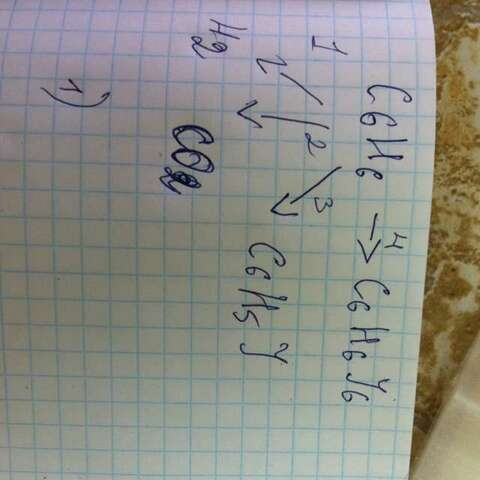 C6H6 4→ C6H6Y6
1 2 3
H2 CO2 C6H5Y
1)